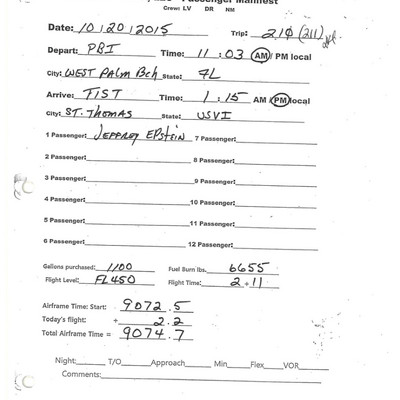 Passenger Manifest
Crew: LV DR NM
Date: 10/20/2015 Trip: 210 (211)
Depart: PBI Time: 11:03 AM / PM local
City: WEST PALM Bch State: FL
Arrive: TIST Time: 1:15 AM / PM local
City: ST. THOMAS State: USVI
1 Passenger: JEFFREY EPSTEIN 7 Passenger:
2 Passenger: 8 Passenger:
3 Passenger: 9 Passenger:
4 Passenger: 10 Passenger:
5 Passenger: 11 Passenger:
6 Passenger: 12 Passenger:
Gallons purchased: 1100 Fuel Burn lbs. 6655
Flight Level: FL450 Flight Time: 2+11
Airframe Time: Start: 9072.5
Today's flight: + 2.2
Total Airframe Time = 9074.7
Night: T/O Approach Min Flex VOR
Comments: